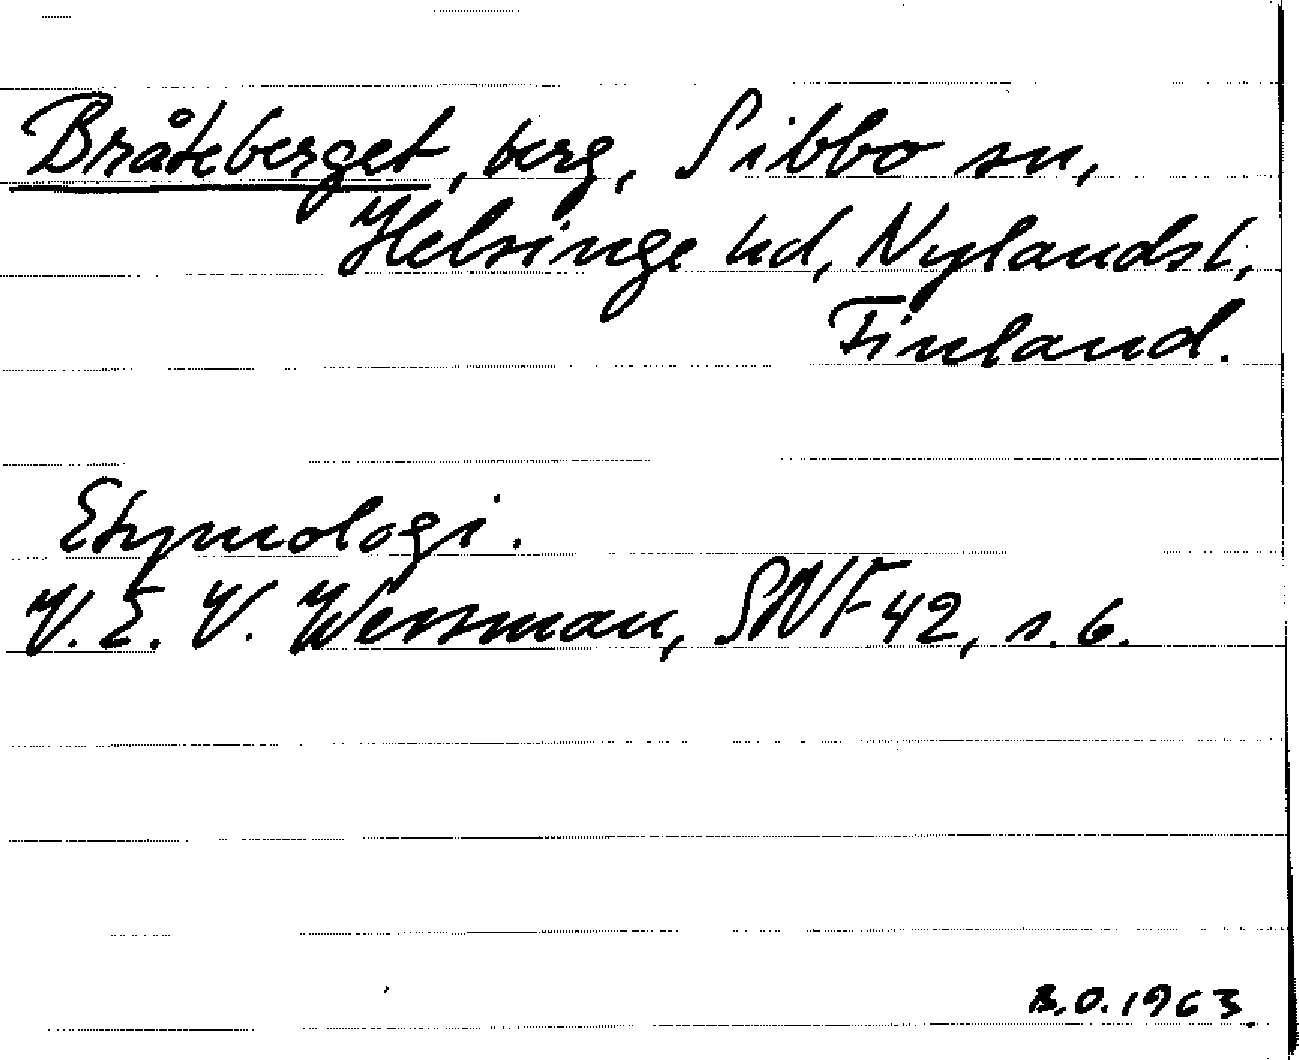 Bråteberget, berg, Sibbo sn,
Helsinge hd, Nylandsl.,
Finland.
Etymologi.
V. E. V. Wessman, SNF 42, s. 6.
B.O. 1963.